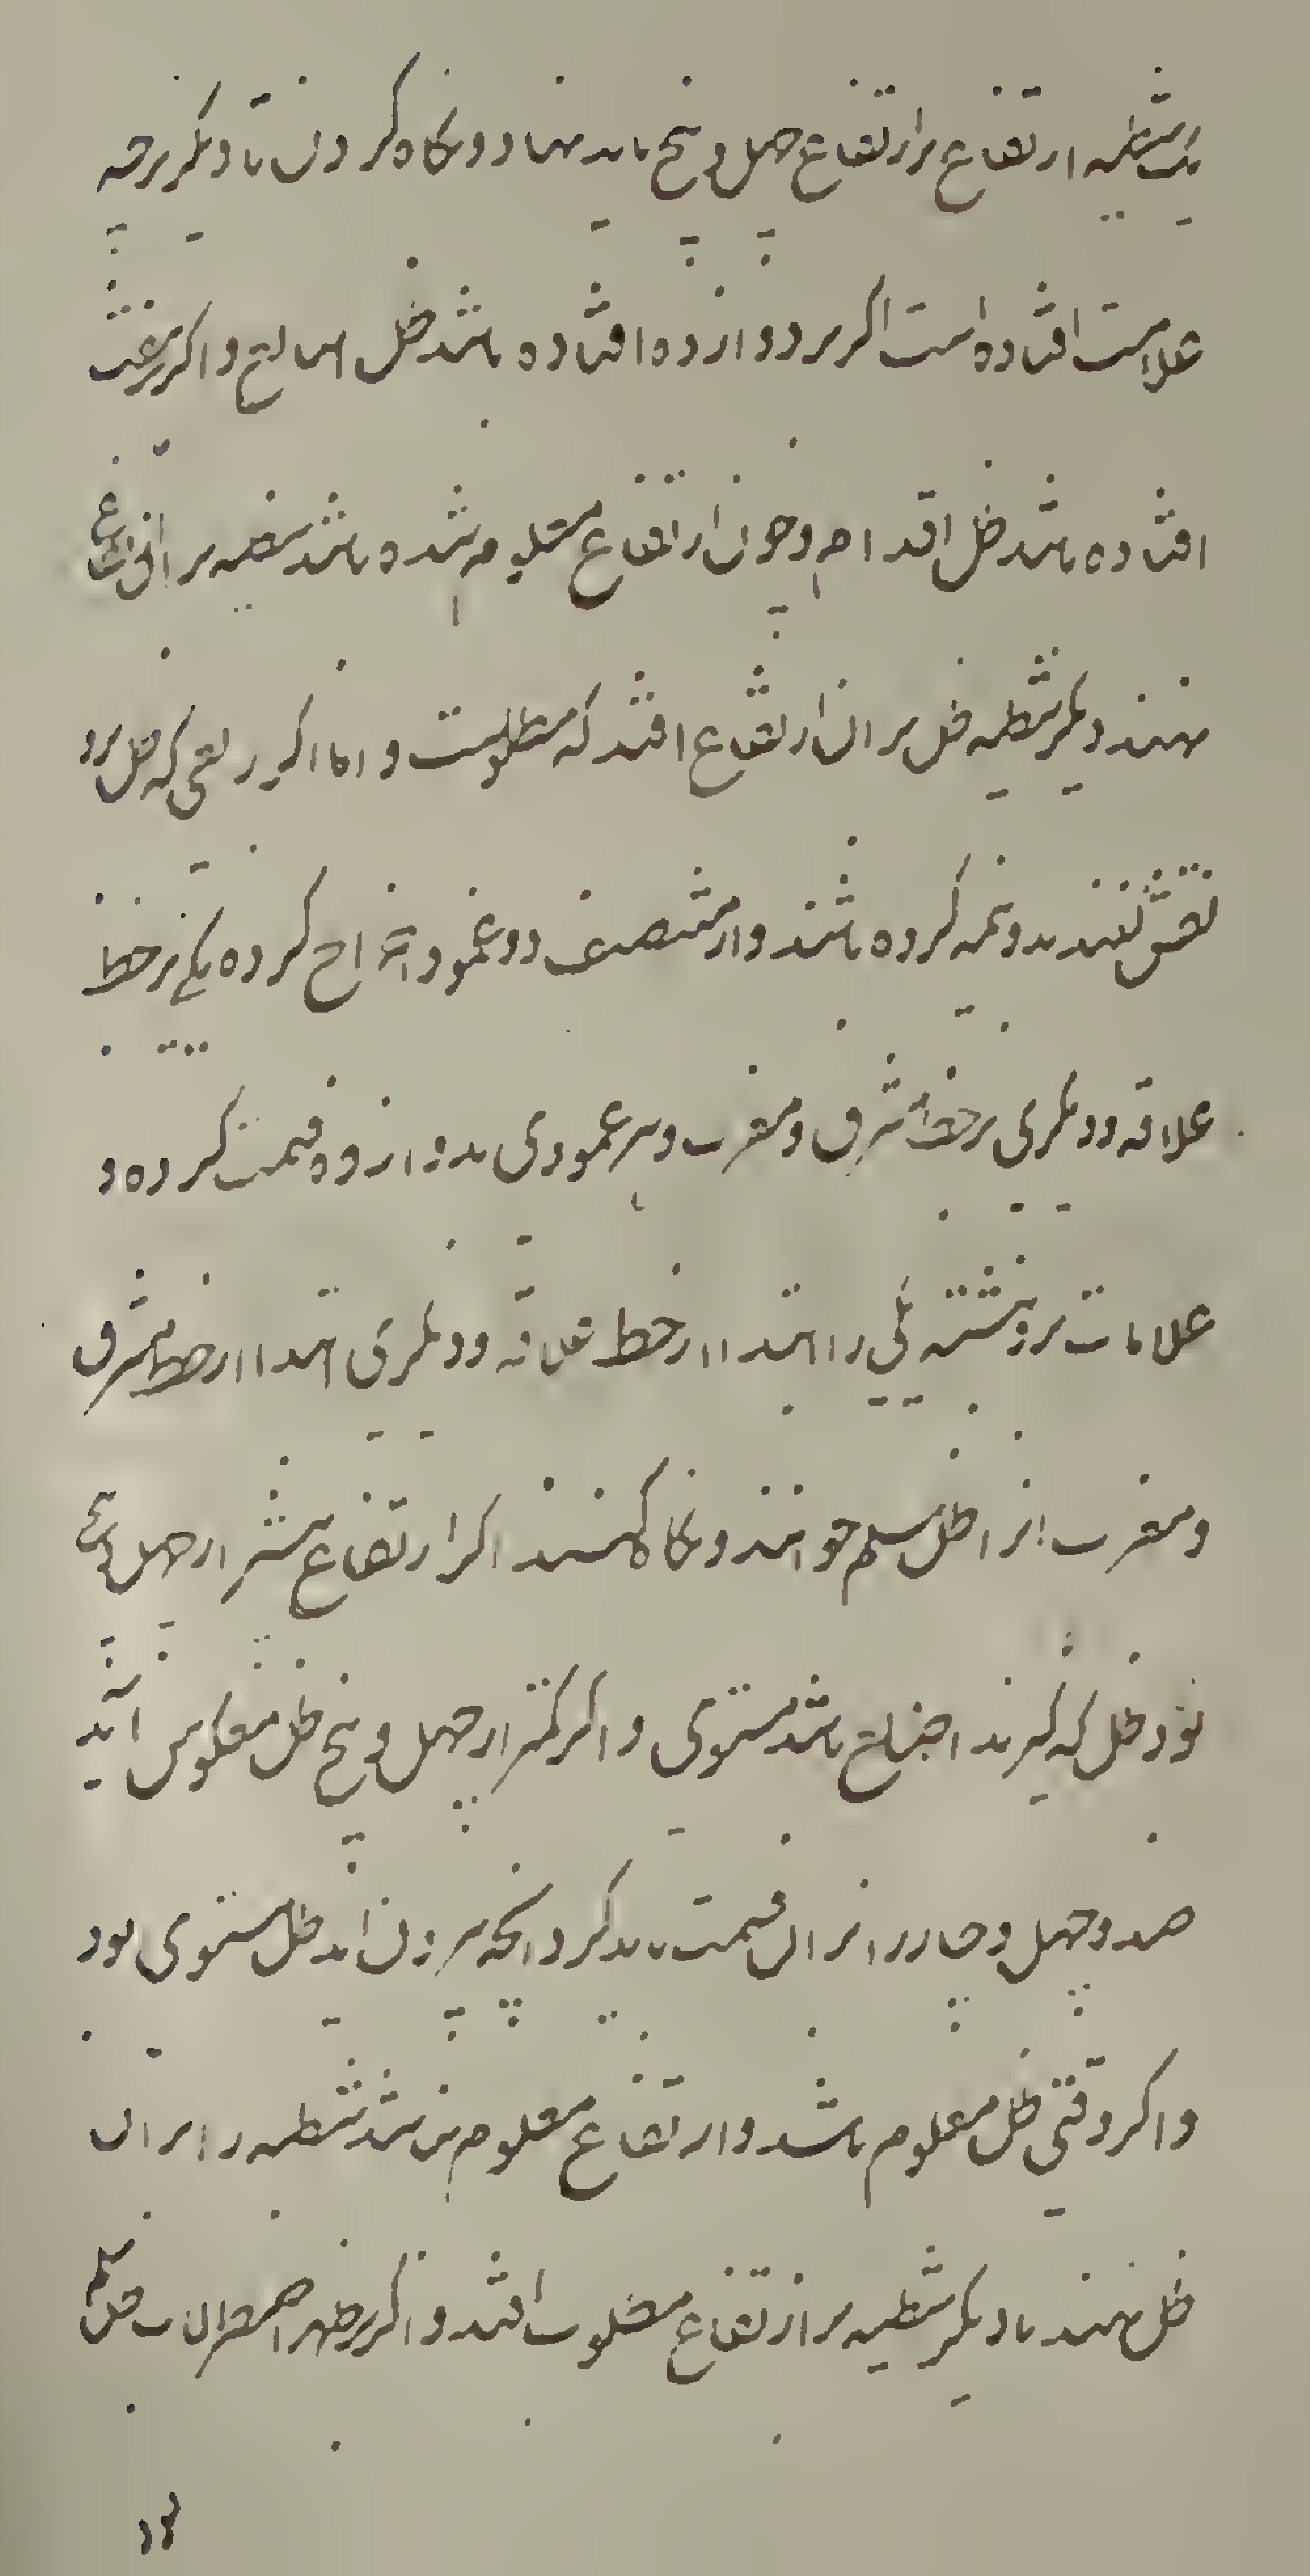 یک شظیه ارتفاع بر ارتفاع چهل و پنج باید نهاد و نکاه کردن تا دیکر بر چه
علامت افتاده است اکر بر دوازده افتاده باشد ظل اصابع و اکر بر هفت
افتاده باشد ظل اقدام و چون ارتفاع معلوم شده باشد شظیه بر ان ارتفاع
نهند دیکر شظیه ظل بر ان ارتفاع افتد که مطلوبست و اما اکر ربعی که ظل برو
نقش کنند بدو نیمه کرده باشند و از منتصف دو عمود اخراج کرده یکی بر خط
علاقه و دیکری بر خط مشرق و مغرب و هر عمودی بدوازده قسمت کرده و
علامات برو نبشته یکی را ابتدا از خط علاقه و دیکری ابتدا از خط مشرق
و مغرب انرا ظل سلم خوانند و نکاه کنند اکر ارتفاع بیشتر از چهل و پنج
بود ظل که کیرند اصابع باشد مستوی و اکر کمتر از چهل و پنج ظل معکوس آید
صد و چهل و چهار را بر ان قسمت باید کرد انچه بیرون اید ظل مستوی بود
و اکر وقتی ظل معلوم باشد و ارتفاع معلوم نباشد شظیه را بر ان
ظل نهند تا دیکر شظیه بر ارتفاع مطلوب افتد و اکر بر ظهر اصطرلاب ظل سلم
بود